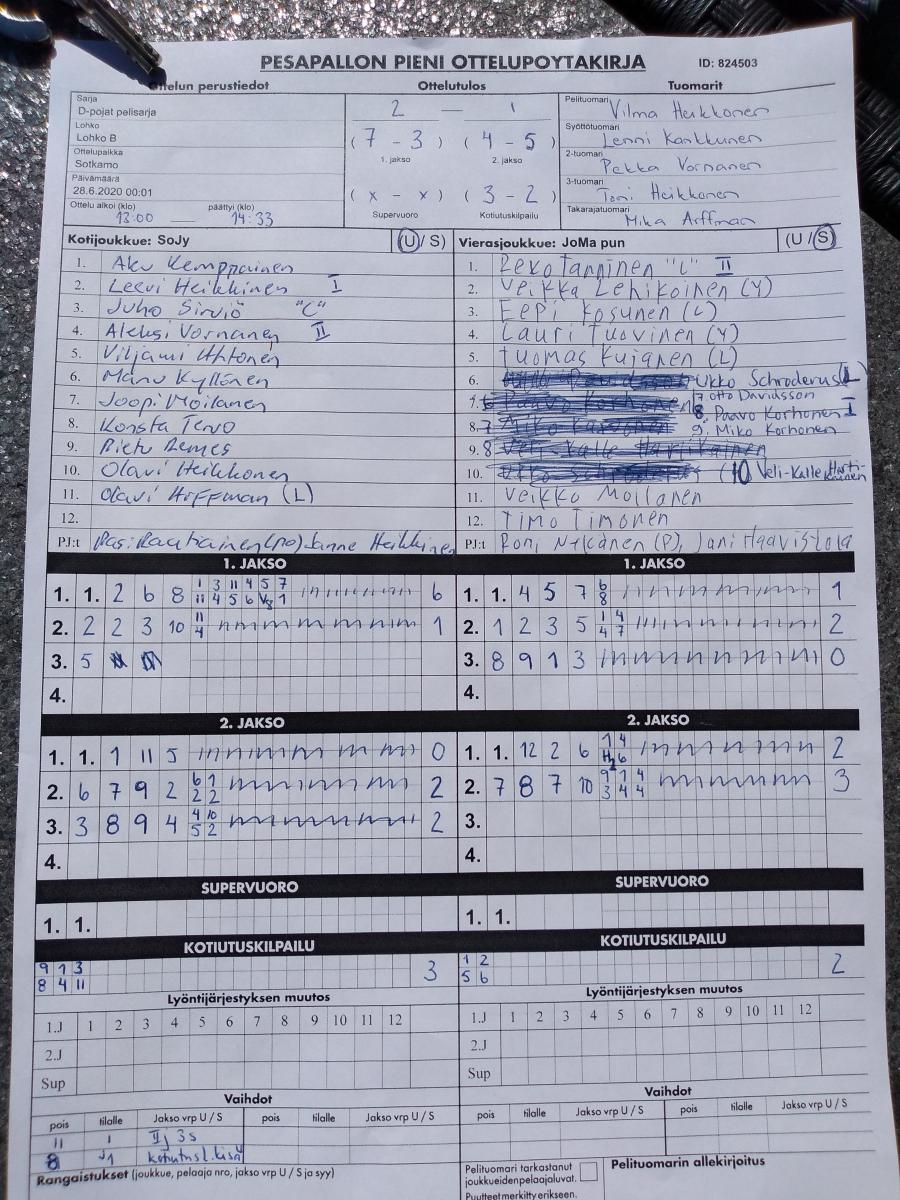 PESÄPALLON PIENI OTTELUPÖYTÄKIRJA ID: 824503
Ottelun perustiedot Ottelutulos Tuomarit
Sarja
D-pojat pelisarja
Lohko
Lohko B
Ottelupaikka
Sotkamo
Päivämäärä
28.6.2020 00:01
Ottelu alkoi (klo) päättyi (klo)
13:00 14:33
2 — 1
( 7 - 3 ) ( 4 - 5 )
1. jakso 2. jakso
( x - x ) ( 3 - 2 )
Supervuoro Kotiutuskilpailu
Pelituomari Vilma Heikkonen
Syöttötuomari Lenni Karkkunen
2-tuomari Pekka Vornanen
3-tuomari Toni Heikkonen
Takarajatuomari Mika Arffman
Kotijoukkue: SoJy (U / S)
1. Aku Kemppainen
2. Leevi Heikkinen I
3. Juho Sirviö "C"
4. Aleksi Vornanen II
5. Viljami Ahtonen
6. Manu Kyllönen
7. Joopi Moilanen
8. Konsta Tervo
9. Rietu Remes
10. Olavi Heikkonen
11. Olavi Arffman (L)
12.
PJ:t Pasi Rautiainen (PJ) Janne Heikkinen
Vierasjoukkue: JoMa pun (U / S)
1. Peko Tanninen "C" II
2. Veikka Lehikoinen (Y)
3. Eepi Kosunen (L)
4. Lauri Tuovinen (Y)
5. Tuomas Kujanen (L)
6. Ukko Schroderus L
7. Otto Davidsson
8. Paavo Korhonen I
9. Miko Korhonen
10. (10 Veli-Kalle Hartikainen
11. Veikko Moilanen
12. Timo Timonen
PJ:t Roni (P), Jani Haavistola
1. JAKSO
1. 1. 2 6 8 1 3 11 4 5 7 6
11 4 5 6 8 1
2. 2 2 3 10 11 1
4
3. 5
4.
1. JAKSO
1. 1. 4 5 7 6 1
8
2. 1 2 3 5 1 4 2
4 7
3. 8 9 1 3 0
4.
2. JAKSO
1. 1. 1 11 5 0
2. 6 7 9 2 6 1 2
2 2
3. 3 8 9 4 4 10 2
5 2
4.
2. JAKSO
1. 1. 12 2 6 1 4 2
6
2. 7 8 7 10 9 1 4 3
3 4 4
3.
4.
SUPERVUORO
1. 1.
SUPERVUORO
1. 1.
KOTIUTUSKILPAILU
9 1 3 3
8 4 11
KOTIUTUSKILPAILU
1 2 2
5 6
Lyöntijärjestyksen muutos
1.J 1 2 3 4 5 6 7 8 9 10 11 12
2.J
Sup
Lyöntijärjestyksen muutos
1.J 1 2 3 4 5 6 7 8 9 10 11 12
2.J
Sup
Vaihdot
pois tilalle Jakso vrp U / S pois tilalle Jakso vrp U / S
11 1 IIj 3s
8
Vaihdot
pois tilalle Jakso vrp U / S pois tilalle Jakso vrp U / S
Rangaistukset (joukkue, pelaaja nro, jakso vrp U / S ja syy)
Pelituomari tarkastanut
joukkueiden pelaajaluvat.
Puutteet merkitty erikseen.
Pelituomarin allekirjoitus